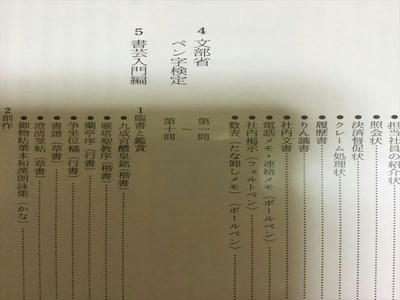 担当社員の紹介状
照会状
決済督促状
クレーム処理状
履歴書
りん議書
社内文書
電話メモ・連絡メモ（ボールペン）
社内掲示（フェルトペン）
数表（たな卸しメモ）（ボールペン）
4 文部省
ペン字検定
第一問
～
第十問
5 書芸入門編
1 臨書と鑑賞
九成宮醴泉銘（楷書）
雁塔聖教序（楷書）
蘭亭序（行書）
争坐位稿（行書）
書譜（草書）
澄清堂帖（草書）
御物粘葉本和漢朗詠集（かな）
2 創作